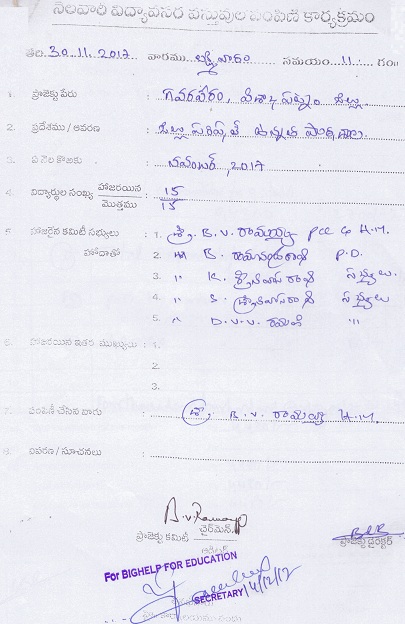 నెలవారి విద్యావసర వస్తువుల పంపిణీ కార్యక్రమం
తేది. 30.11.2017 వారము లక్ష్మివారం సమయం : 11 : గం॥
1. ప్రాజెక్టు పేరు : గవరవరం, విశాఖపట్నం జిల్లా.
2. ప్రదేశము / ఆవరణ : జిల్లా పరిషత్ ఉన్నత పాఠశాల.
3. ఏ నెల కొఱకు : నవంబర్, 2017
4. విద్యార్థుల సంఖ్య హాజరయిన : 15
మొత్తము 15
5. హాజరైన కమిటీ సభ్యులు : 1. శ్రీ B.V. రామయ్య PCC & H.M.
హోదాతో 2. " B. రామచంద్రరాజు P.D.
3. " K. శ్రీనివాసరాజు సభ్యులు
4. " S. సభ్యులు
5. " D.V.V. రామణ "
6. హాజరయిన ఇతర ముఖ్యులు : 1.
2.
3.
7. పంపిణీ చేసిన వారు : శ్రీ B.V. రామయ్య H.M.
8. వివరణ / సూచనలు :
B.V. Ramayya
ప్రాజెక్టు కమిటీ ఛైర్మెన్
ప్రాజెక్టు డైరెక్టర్
For BIGHELP FOR EDUCATION
SECRETARY 4/12/17